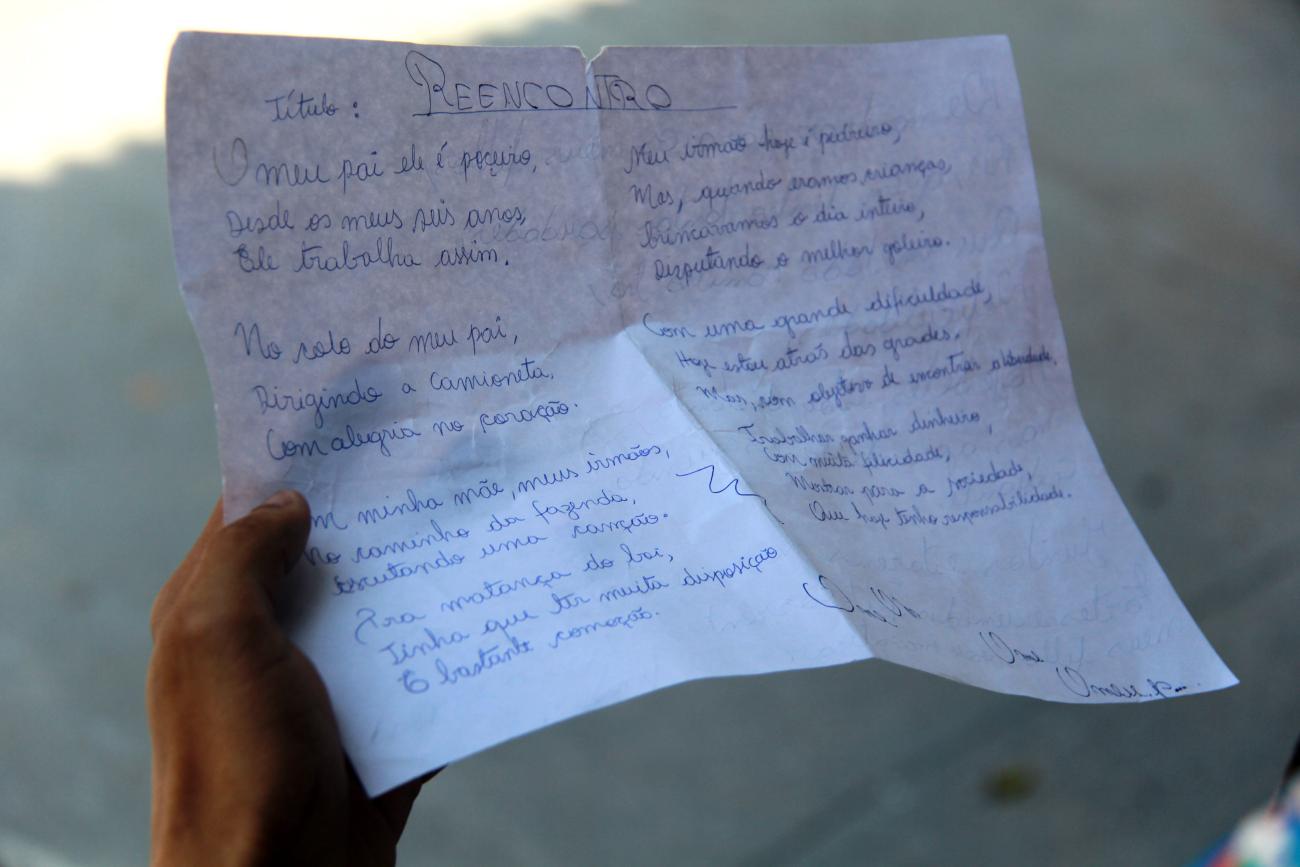 Título: REENCONTRO
O meu pai ele é poçeiro,
Desde os meus seis anos,
Ele trabalha assim.
No colo do meu pai,
Dirigindo a camioneta,
Com alegria no coração.
minha mãe, meus irmãos,
No caminho da fazenda,
Escutando uma canção.
Pra matança do boi,
Tinha que ter muita disposição
E bastante comoção.
Meu irmão hoje é pedreiro,
Mas, quando eramos crianças,
Brincavamos o dia inteiro,
Disputando o melhor goleiro.
Com uma grande dificuldade,
Hoje estou atrás das grades.
Mas, com objetivo de encontrar a liberdade,
Trabalhar, ganhar dinheiro,
Com muita felicidade,
Mostrar para a sociedade,
Que hoje tenho responsabilidade.
O meu p...